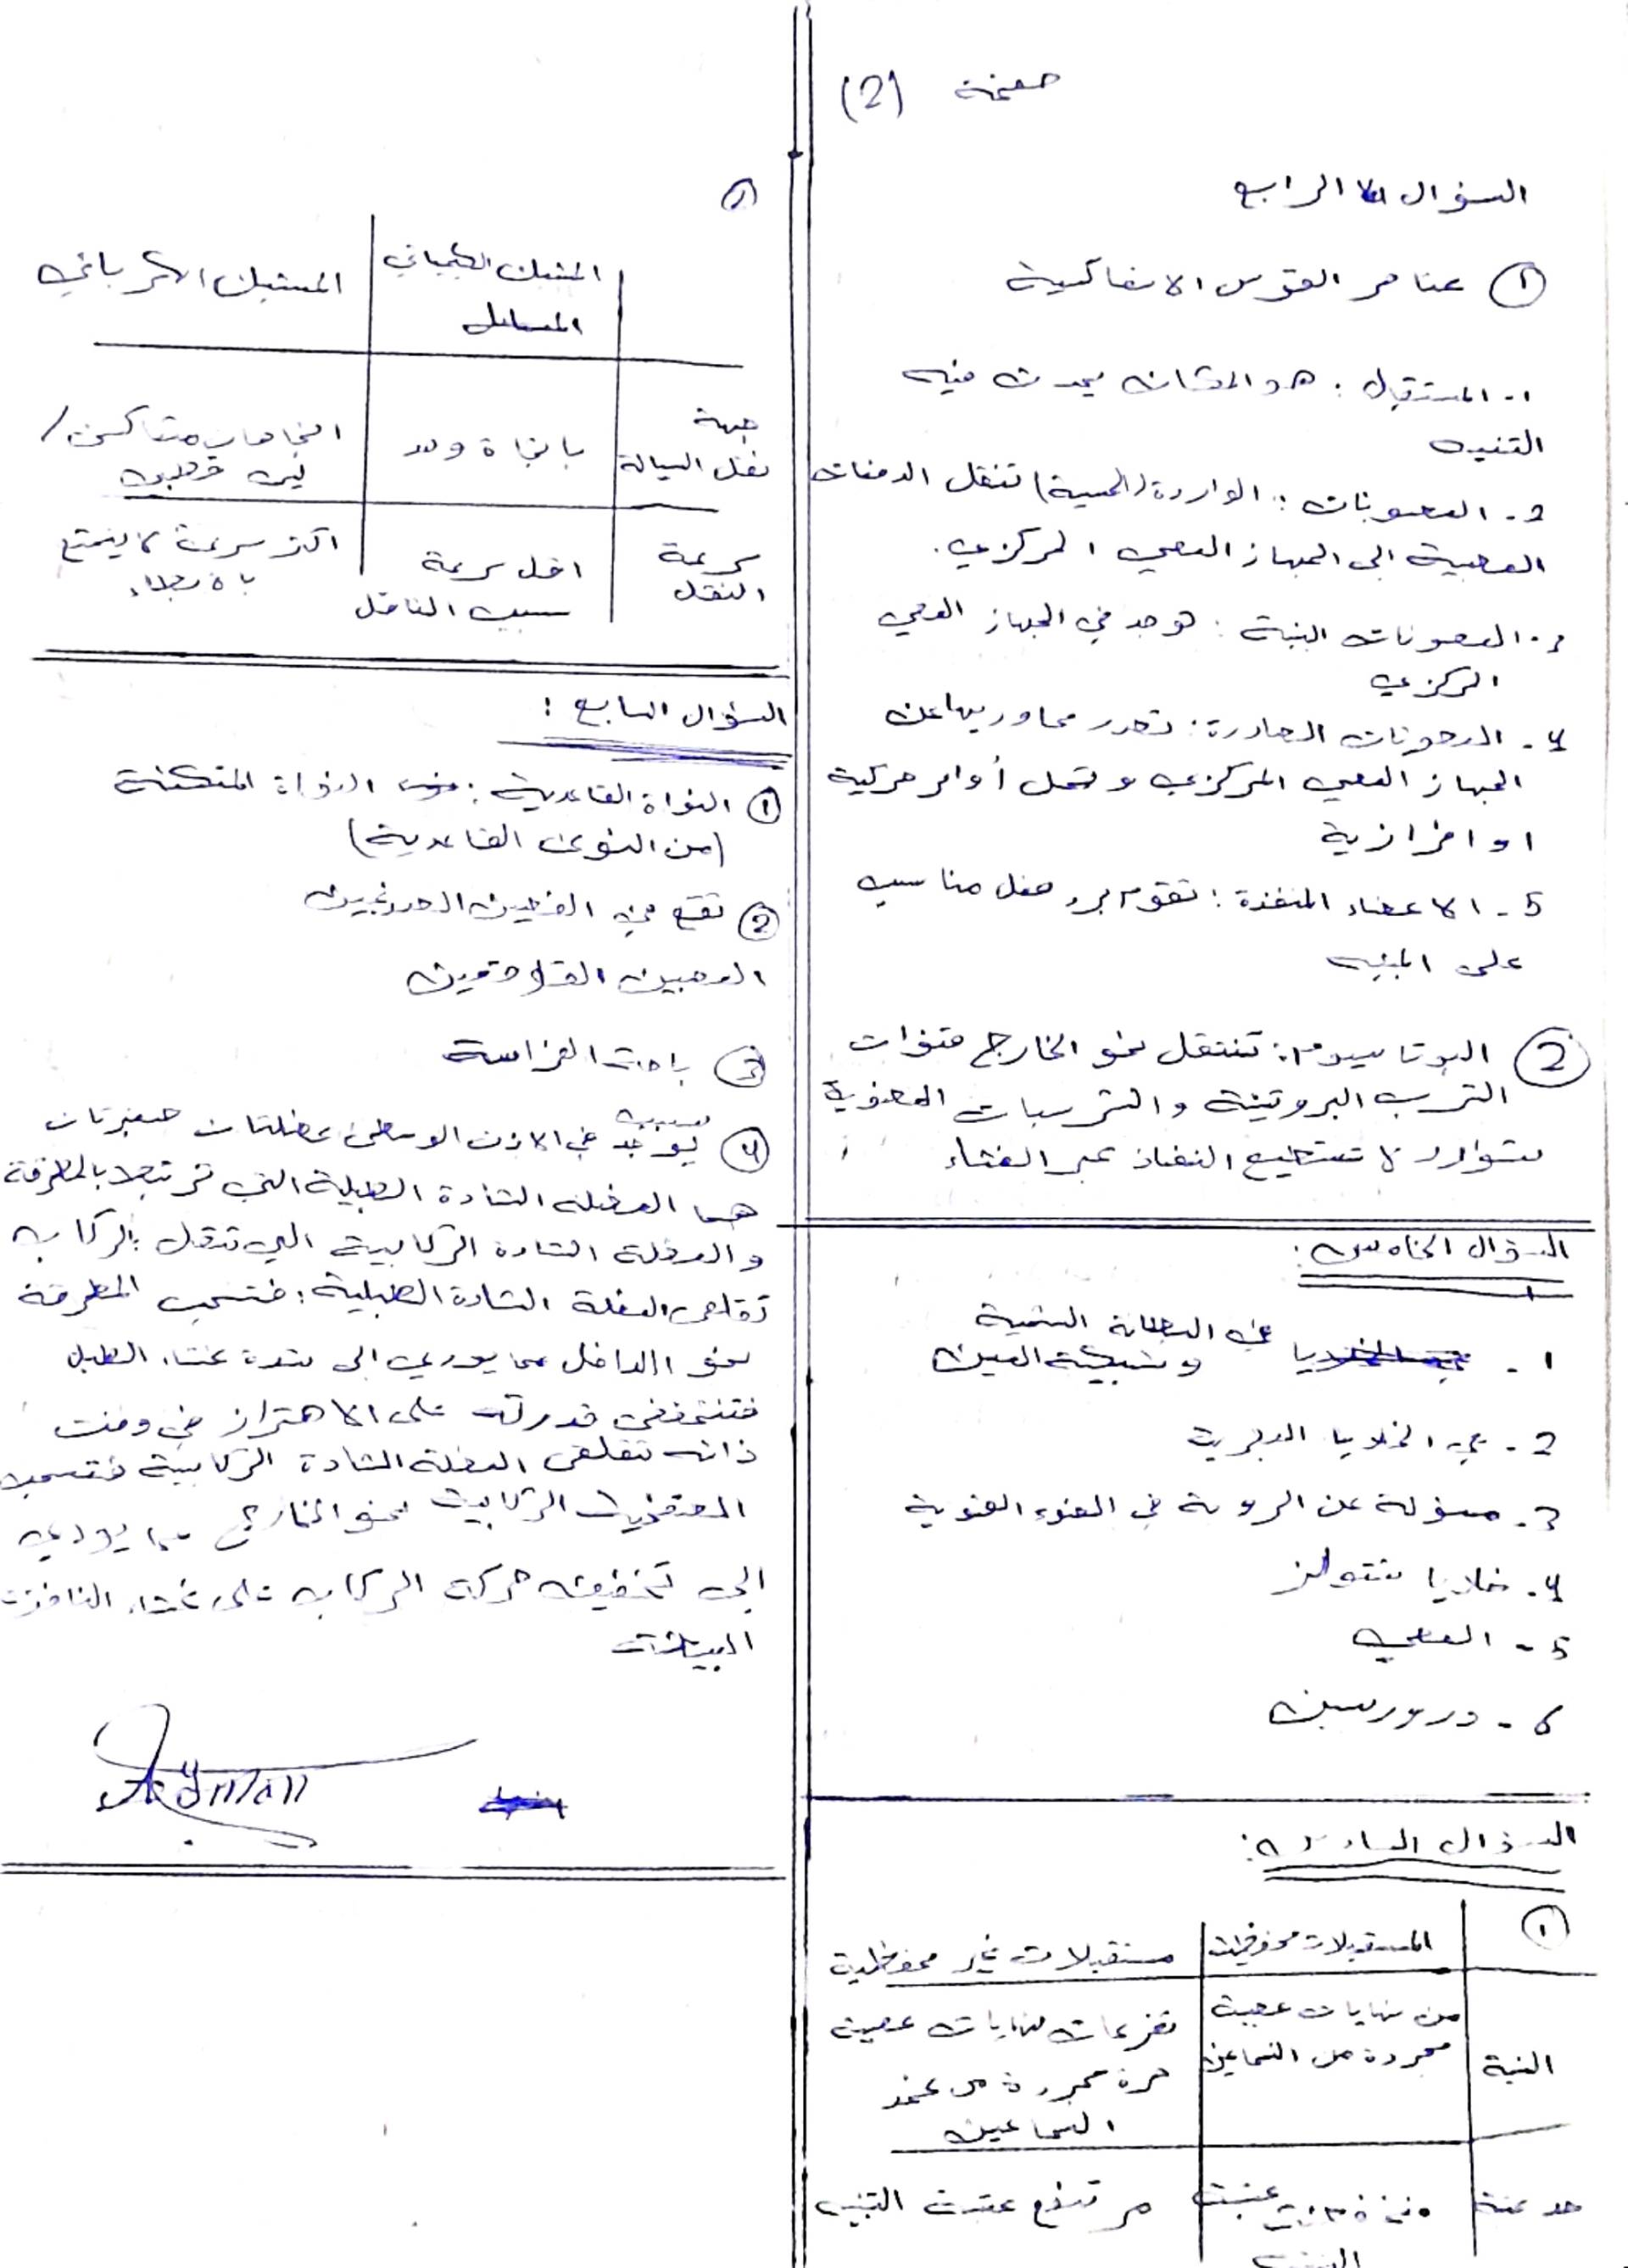 صفحة (2)
السؤال الرابع
① عناصر القوس الانعاكسية
1- المستقبل : هو المكان يحدث فيه
التنبيه
2- العصبونات : الواردة (الحسية) تنقل الدفعات
العصبية الى الجهاز العصبي المركزي .
العصبونات البنية : توجد في الجهاز العصبي
المركزي
4- العصبونات الصادرة : تصدر محاورها عن
الجهاز العصبي المركزي وتحمل أوامر حركية
او افرازية
5- الاعضاء المنفذة : تقوم برد فعل مناسب
على المنبه
② البوتاسيوم : تنتقل نحو الخارج قنوات
التسرب البروتينة والشرسبات العضوية
شوارد لا تستطيع النفاذ عبر الغشاء
السؤال الخامس :
1- في البطانة الشمية
وشبكية العين
2- في الخلايا الدبقية
3- مسؤلة عن الرؤية في الضوء القوية
4- خلايا شتولز
5- العصي
6- رودوبسين
السؤال السادس :
①
المستقبلات محفظية | مستقبلات غير محفظية
البنية | من نهايات عصبية | تفرعات نهايات عصبية
مجردة من النخاعين | حرة مجردة من غمد
النخاعين
عتبة | منخفضة عتبة | مرتفع عتبة التنبيه
②
المشبك الكيميائي | المشبك الكهربائي
جهة | باتجاة واحد | اتجاهان متعاكسين /
نقل السيالة
سرعة | اقل سرعة | اكثر سرعة لا يتمتع
النقل | بسبب الناقل | بالإبطاء
السؤال السابع :
① النواة القاعدية : النواة المتكئنة
(من النوى القاعدية)
② تقع في الفصين الصدغيين
③ باحة الفراسة
④ يوجد في الاذن الوسطى عضلتان صغيرتان
هما العضلة الشادة الطبلية التي ترتبط بالمطرقة
والعضلة الشادة الركابية التي تتصل بالركاب
تقلص العضلة الشادة الطبلية : فتسحب المطرقة
نحو الداخل مما يودي الى شدة غشاء الطبل
فتنخفض قدرته على الاهتزاز في وقت
ذاته تتقلص العضلة الشادة الركابية فتسحب
الصفيحة الركابية نحو الخارج مما يودي
الى تخفيف حركة الركاب على غشاء النافذة
البيضية
Ayman